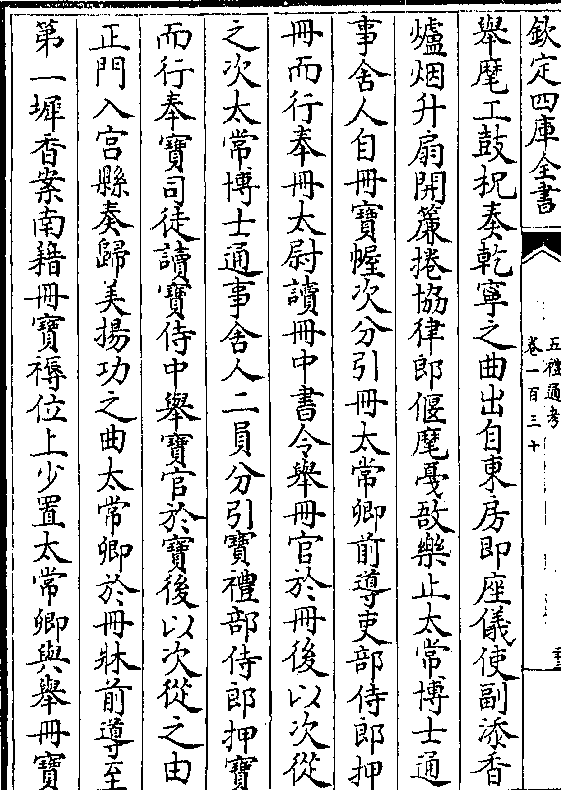 欽定四庫全書
五禮通考
卷一百三十
舉麾工鼓柷奏乾寧之曲出自東房即座儀使副添香
爐烟升扇開簾捲協律郎偃麾戞敔樂止太常博士通
事舍人自冊寶幄次分引冊太常卿前導吏部侍郎押
冊而行奉冊太尉讀冊中書令舉冊官於冊後以次從
之次太常博士通事舍人二員分引寶禮部侍郎押寶
而行奉寶司徒讀寶侍中舉寶官於寶後以次從之由
正門入宫縣奏歸美揚功之曲太常卿於冊牀前導至
第一墀香案南藉冊寶褥位上少置太常卿與舉冊寶